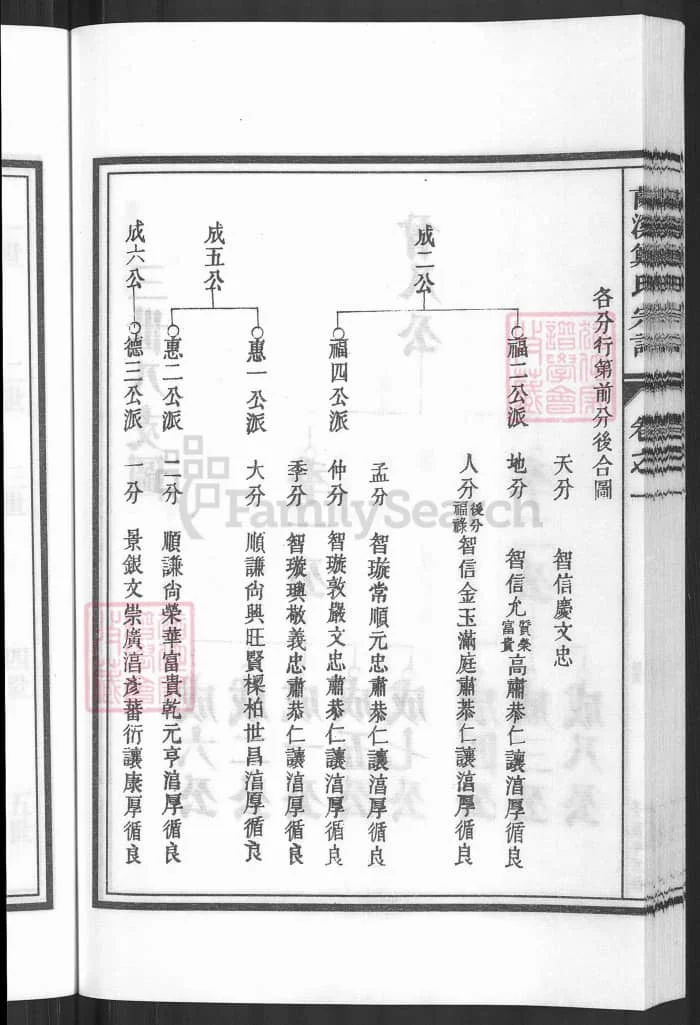 各分行第前分後合圖
成二公
福二公派
天分 智信慶文忠
地分 智信允 質榮 富貴 高肅恭仁讓湻厚循良
人分 後分 福祿 智信金玉滿庭肅恭仁讓湻厚循良
福四公派
孟分 智璇常順元忠肅恭仁讓湻厚循良
仲分 智璇敦嚴文忠肅恭仁讓湻厚循良
季分 智璇璵敬義忠肅恭仁讓湻厚循良
成五公
惠一公派
大分 順謙尙興旺賢樑柏世昌湻厚循良
惠二公派
二分 順謙尙榮華富貴乾元亨湻厚循良
成六公
德三公派
一分 景銀文崇廣湻彥蕃衍讓康厚循良
FamilySearch